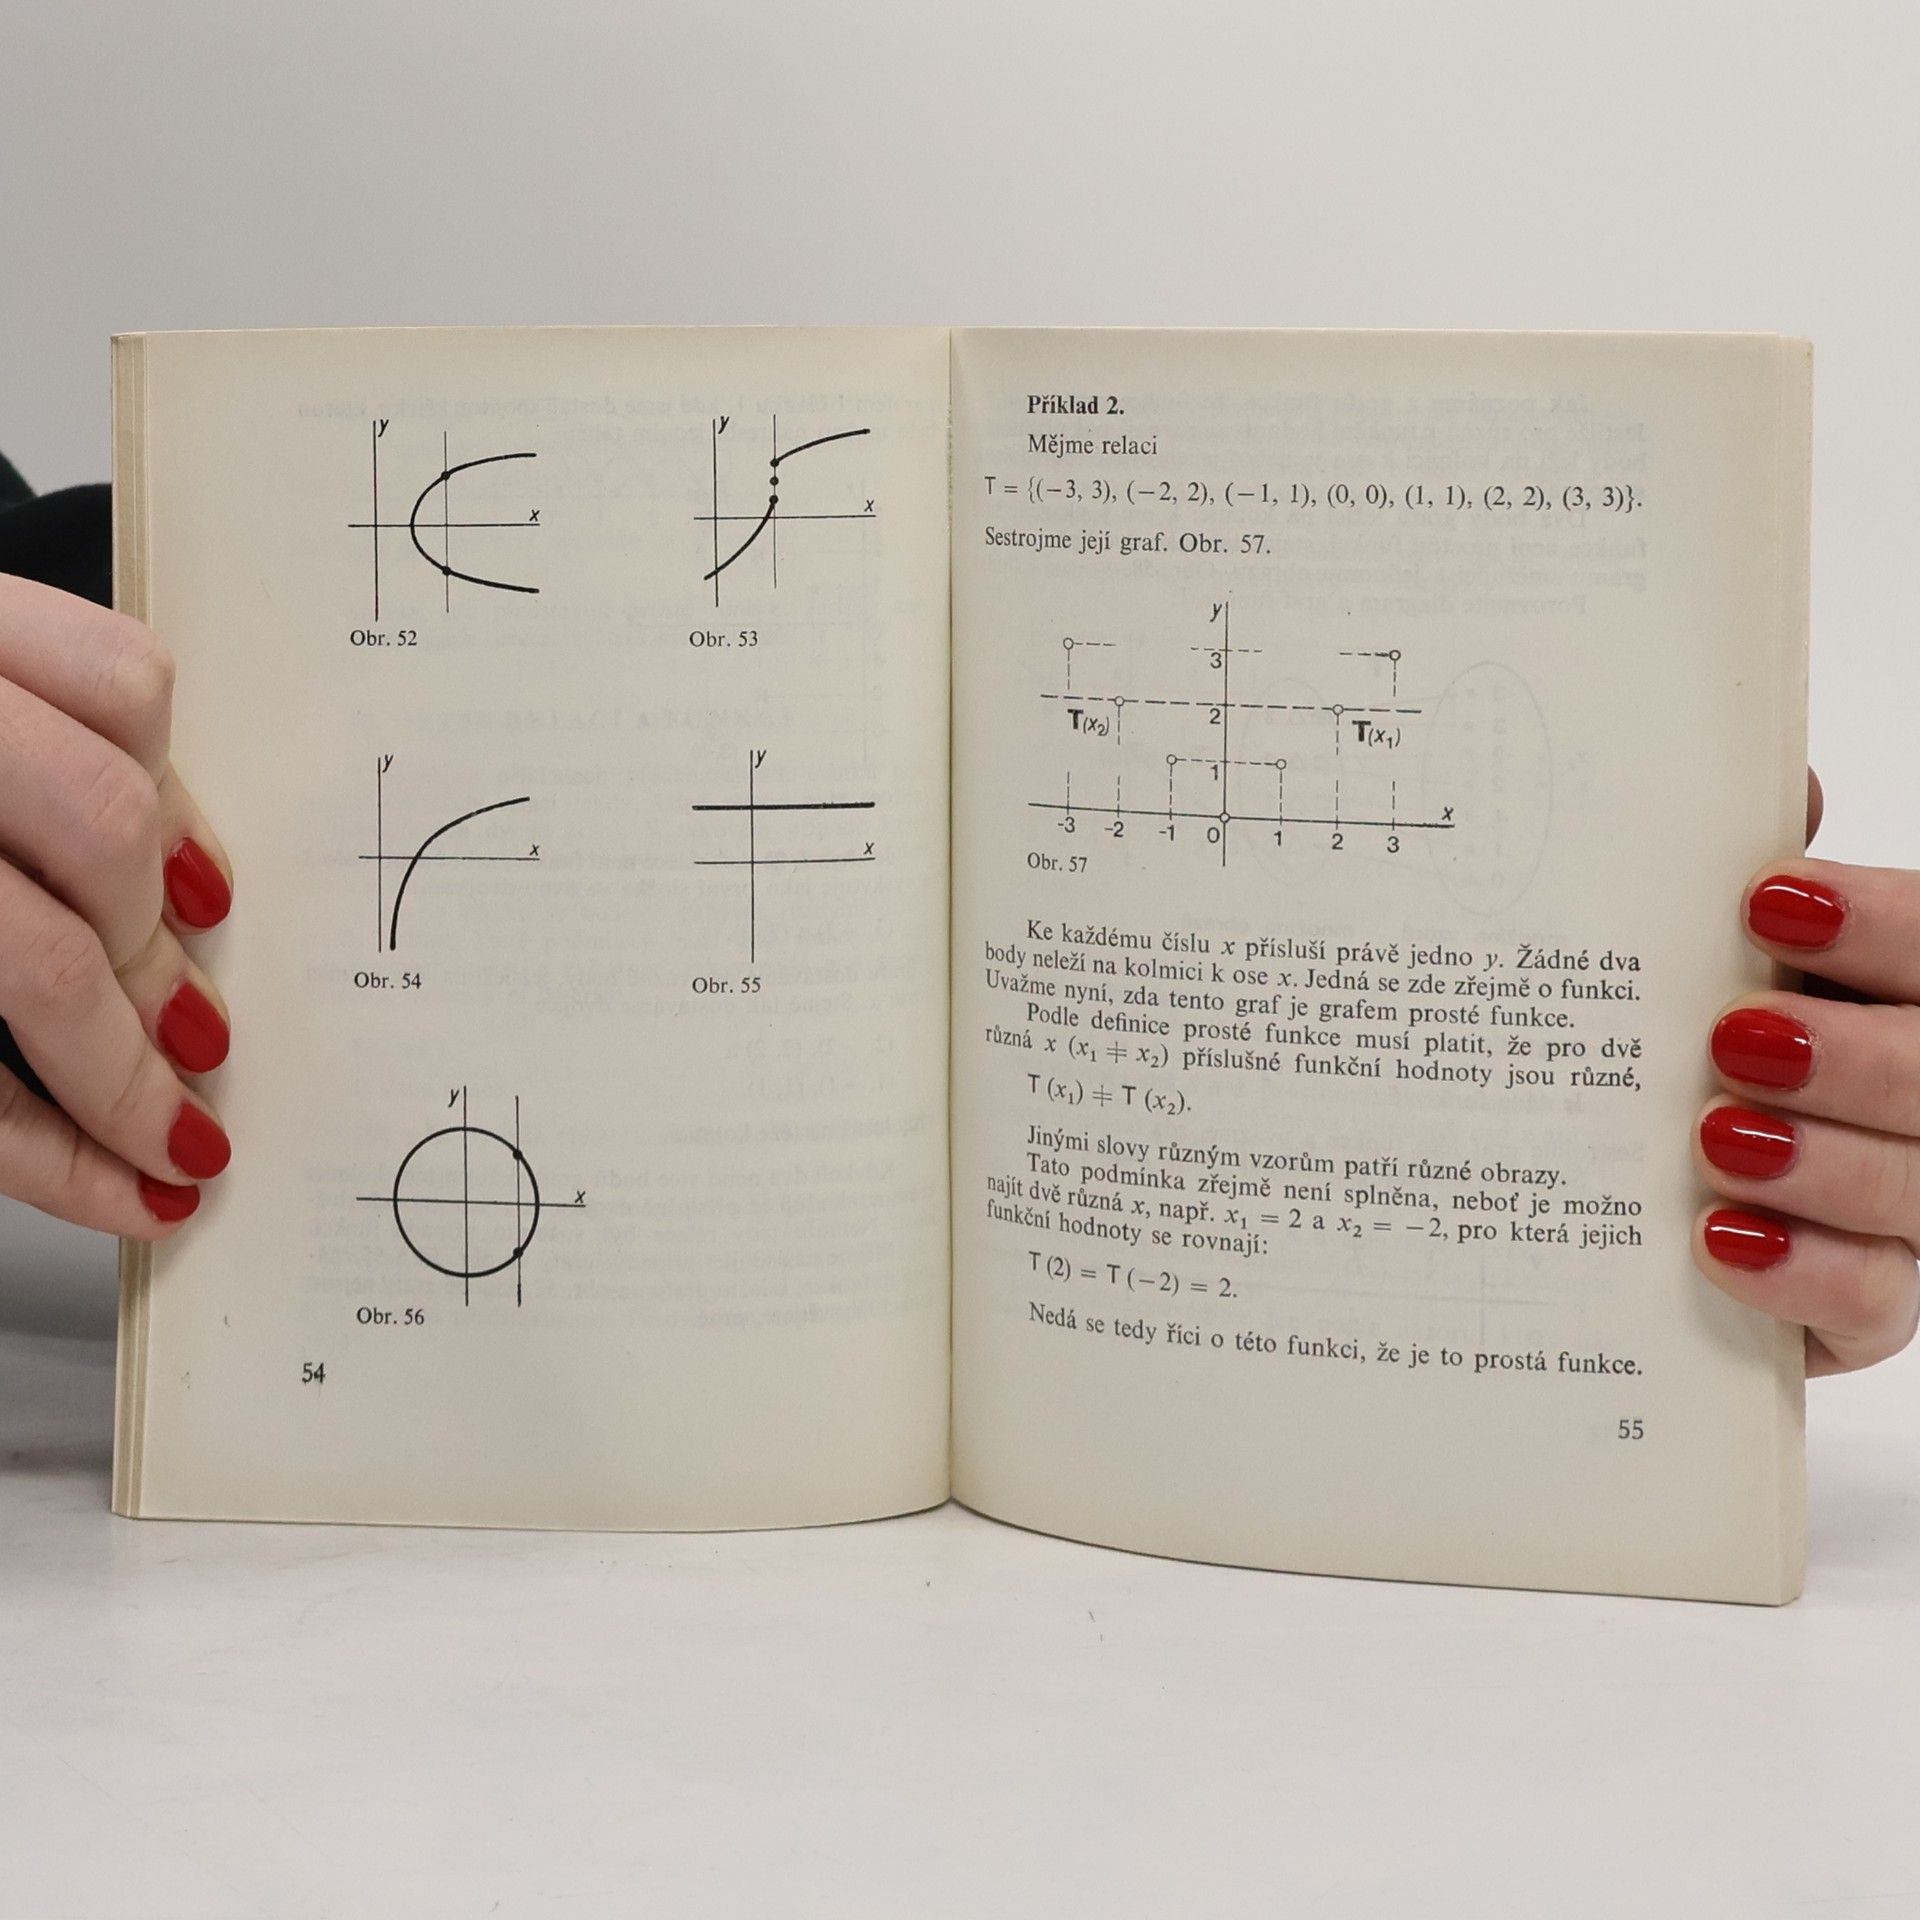 y
x
Obr. 52
y
x
Obr. 53
y
x
Obr. 54
y
x
Obr. 55
y
x
Obr. 56
54
Příklad 2.
Mějme relaci
T = {(−3, 3), (−2, 2), (−1, 1), (0, 0), (1, 1), (2, 2), (3, 3)}.
Sestrojme její graf. Obr. 57.
y
3
2
T(x₂)
T(x₁)
1
x
-3 -2 -1 0 1 2 3
Obr. 57
Ke každému číslu x přísluší právě jedno y. Žádné dva
body neleží na kolmici k ose x. Jedná se zde zřejmě o funkci.
Uvažme nyní, zda tento graf je grafem prosté funkce.
Podle definice prosté funkce musí platit, že pro dvě
různá x (x₁ ≠ x₂) příslušné funkční hodnoty jsou různé,
T (x₁) ≠ T (x₂).
Jinými slovy různým vzorům patří různé obrazy.
Tato podmínka zřejmě není splněna, neboť je možno
najít dvě různá x, např. x₁ = 2 a x₂ = −2, pro která jejich
funkční hodnoty se rovnají:
T (2) = T (−2) = 2.
Nedá se tedy říci o této funkci, že je to prostá funkce.
55